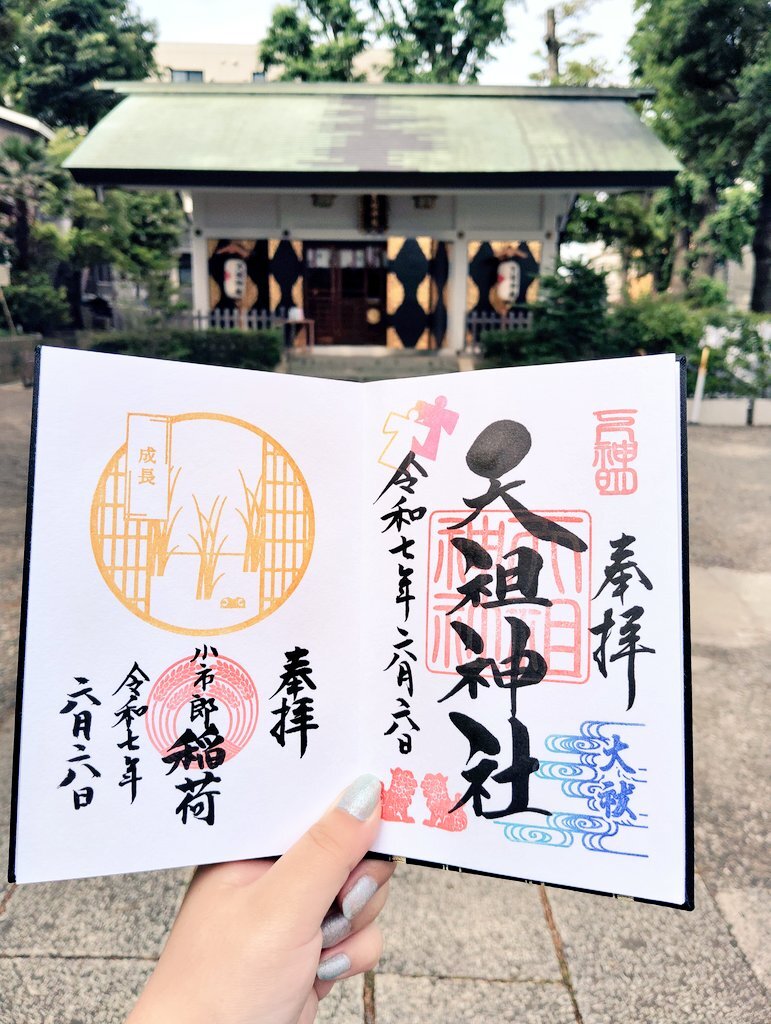 奉拝
天祖神社
天祖
神社
令和七年六月二八日
大祓
成長
奉拝
小市郎稲荷
令和七年
六月二八日